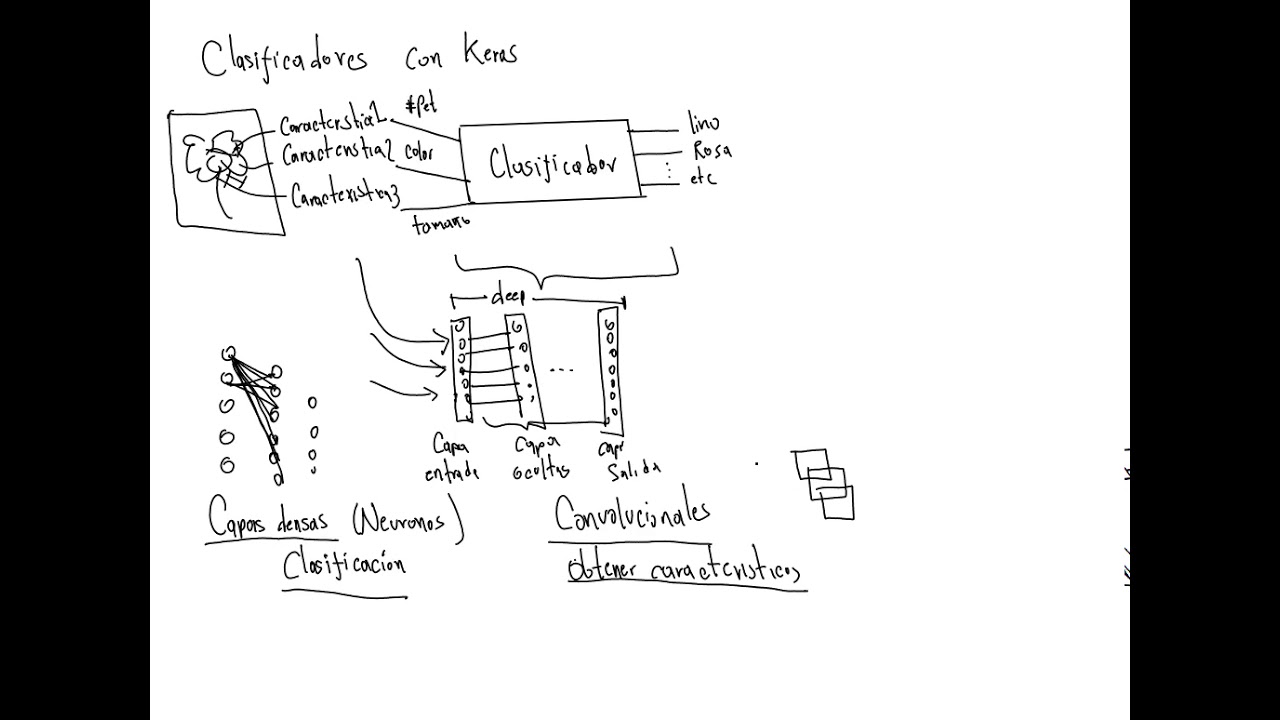 Clasificadores con Keras
Caracterstica1 #Pet
Caracterstica2 color
Caracteristica3
tamaño
Clasificador
lirio
Rosa
etc
deep
Capa entrada
Capa ocultas
capa Salida
Capas densas (Neuronas)
Clasificación
Convolucionales
Obtener caracteristicas